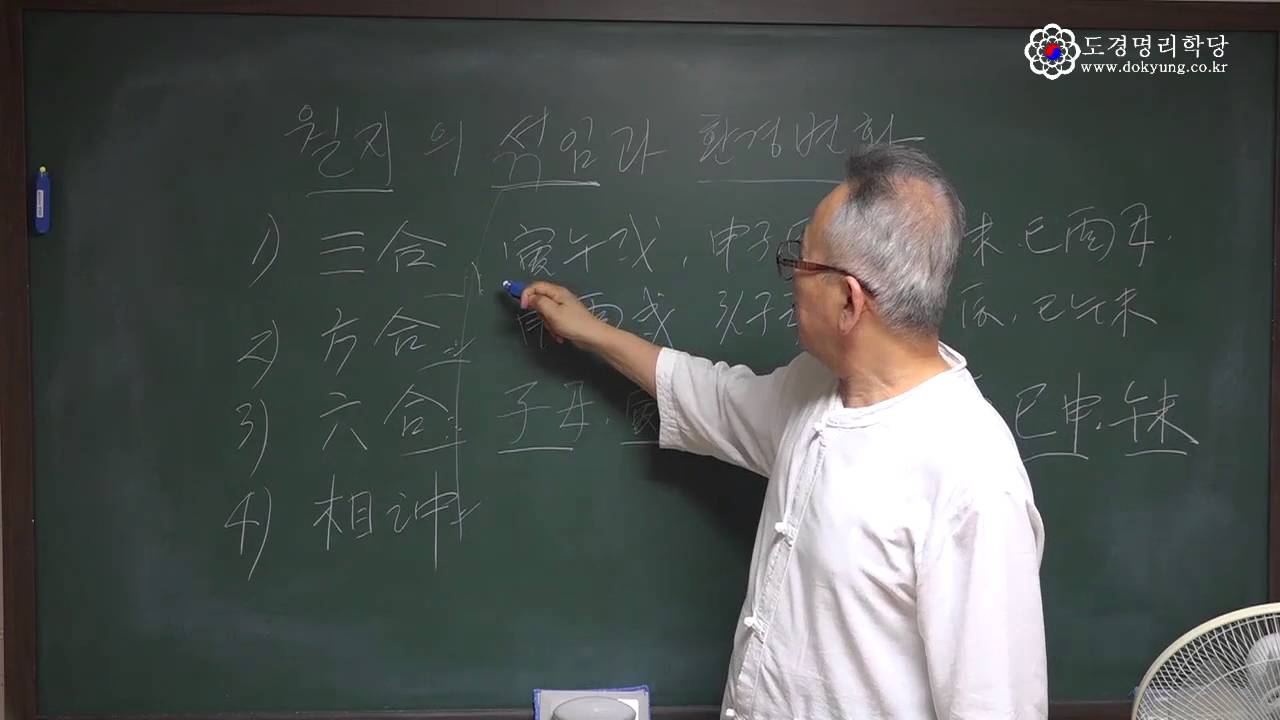 도경명리학당
www.dokyung.co.kr
월지의 섞임과 환경변화
1) 三合 寅午戌, 申子 未. 巳酉丑.
2) 方合 申酉戌 亥子 辰. 巳午未
3) 六合 子丑. 寅 巳申. 午未
4) 相冲